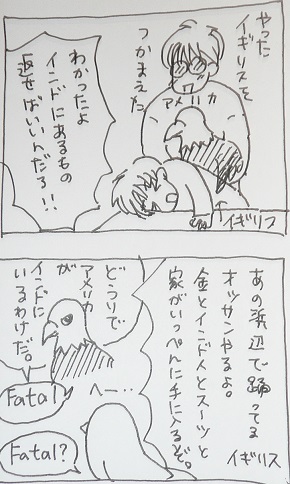 やった
イギリスを
つかまえた
アメリカ
わかったよ
インドにあるもの
返せばいいんだろ!!
イギリス
あの浜辺で踊ってる
オッサンやるよ。
金とインド人とスーツと
家がいっぺんに手に入るぞ。
イギリス
どうりで
アメリカ
が
インドに
いるわけだ。
へー…
Fatal
Fatal?